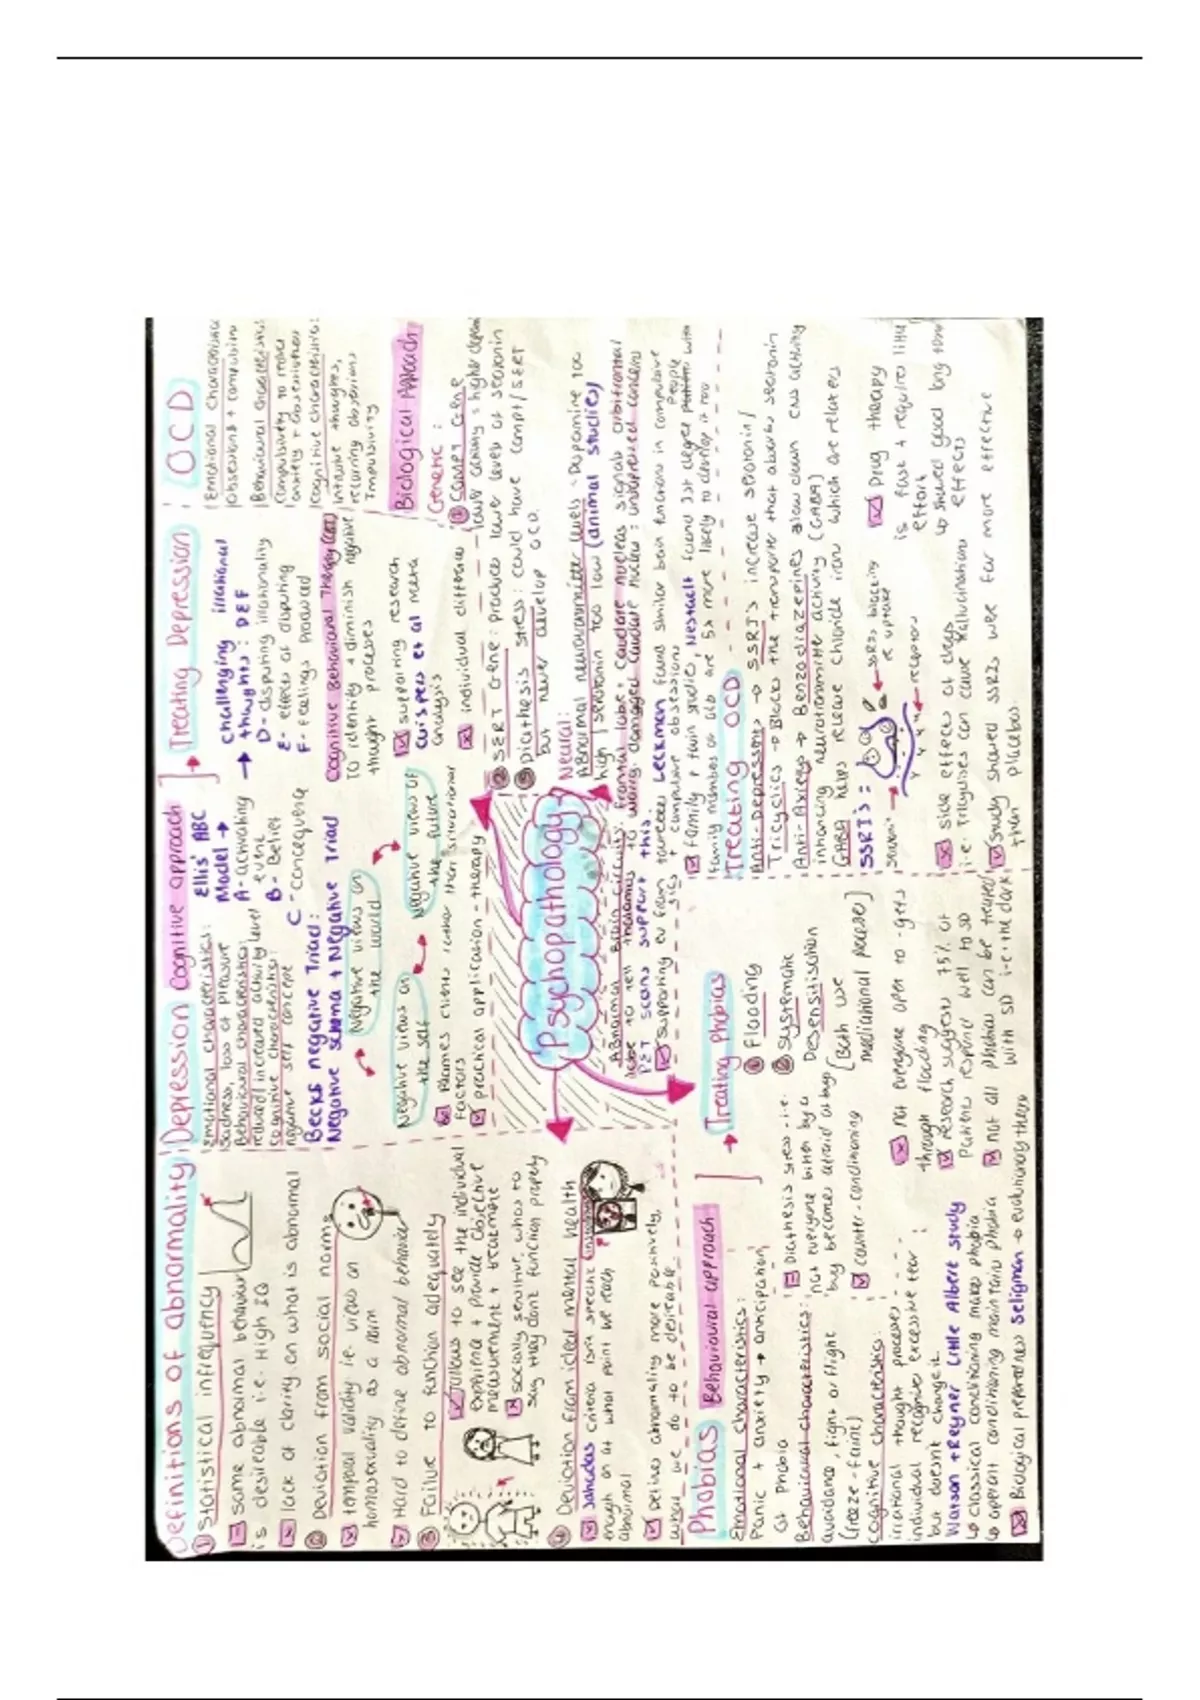 Definitions of abnormality
① Statistical infrequency
some abnormal behaviour
is desireable i.e. High IQ
lack of clarity on what is abnormal
② Deviation from social norms
temporal validity i.e. views on
homosexuality as a norm
Hard to define abnormal behaviour
③ Failure to function adequately
Allows to see the individual
experience + provide objective
measurement + treatment
socially sensitive, who's to
say they don't function properly
④ Deviation from ideal mental health
Jahodas criteria isn't specific
enough on at what point we reach
abnormal
Defines abnormality more positively,
what we do to be desirable.
Depression
Cognitive approach
Emotional characteristics:
Sadness, loss of pleasure
Behavioural characteristics:
reduced/increased activity level
Cognitive characteristics:
negative self concept
Ellis' ABC
Model →
A - activating
event
B - Belief
C - consequence
Becks negative Triad:
Negative schema + Negative Triad
Negative views on
the world
Negative views on
the self
Negative views of
the future
Blames client rather than situational
factors
practical application - therapy
→ Treating Depression
challenging irrational
→ thoughts: DEF
D - disputing irrationality
E - effects of disputing
F - feelings produced
Cognitive Behavioural Therapy (CBT)
To identify + diminish negative
thought processes
supporting research
Cuijpers et al meta
analysis
individual differences
OCD
Emotional characteristics
obsessions + compulsions
Behavioural characteristics:
compulsivity to reduce
anxiety + obsessions
cognitive characteristics:
intrusive thoughts,
recurring obsessions
Impulsivity
Biological Approach
Genetic:
① COMPT Gene
② SERT Gene: produce lower levels of serotonin
③ Diathesis stress: could have compt/SERT
but never develop OCD.
Neural:
Abnormal neurotransmitter levels - Dopamine too
high / serotonin too low (animal studies)
PET scans support this.
family + twin studies, Nestadt found 1st degree people with
family members of OCD are 5x more likely to develop it too
Psychopathology
Treating OCD
Anti-Depressants → SSRIs increase serotonin/
Tricyclics → Blocks the transporter that absorbs serotonin
Anti-Anxiety → Benzodiazepines slow down CNS activity
inhancing neurotransmitter activity (GABA)
GABA helps release chloride ions which are relaxers
SSRIs =
SSRIs blocking
re uptake
receptors
Drug therapy
is fast + requires little
effort
↳ showed good long term
effects
Side effects of drugs
i.e. Tricyclics can cause Hallucinations
Study showed SSRIs were far more effective
than placebos.
Phobias
Behavioural approach
Emotional characteristics:
Panic + anxiety → anticipation
of Phobia
Behavioural characteristics:
avoidance, fight or flight
(freeze-faint)
cognitive characteristics:
irrational thought processes
individual recognise excessive fear
but doesn't change it.
Watson + Reyner Little Albert study:
↳ classical conditioning makes phobia
↳ operant conditioning maintains phobia
Biological preparedness Seligman → evolutionary theory
Diathesis stress - i.e.
not everyone bitten by a
bug becomes afraid of bugs
counter-conditioning
→ Treating Phobias
① Flooding
② Systematic
Desensitisation
(Both use
mediational processes)
not everyone open to - gets
through flooding
research suggests 75% of
patients respond well to SD
not all phobias can be treated
with SD i.e. the dark